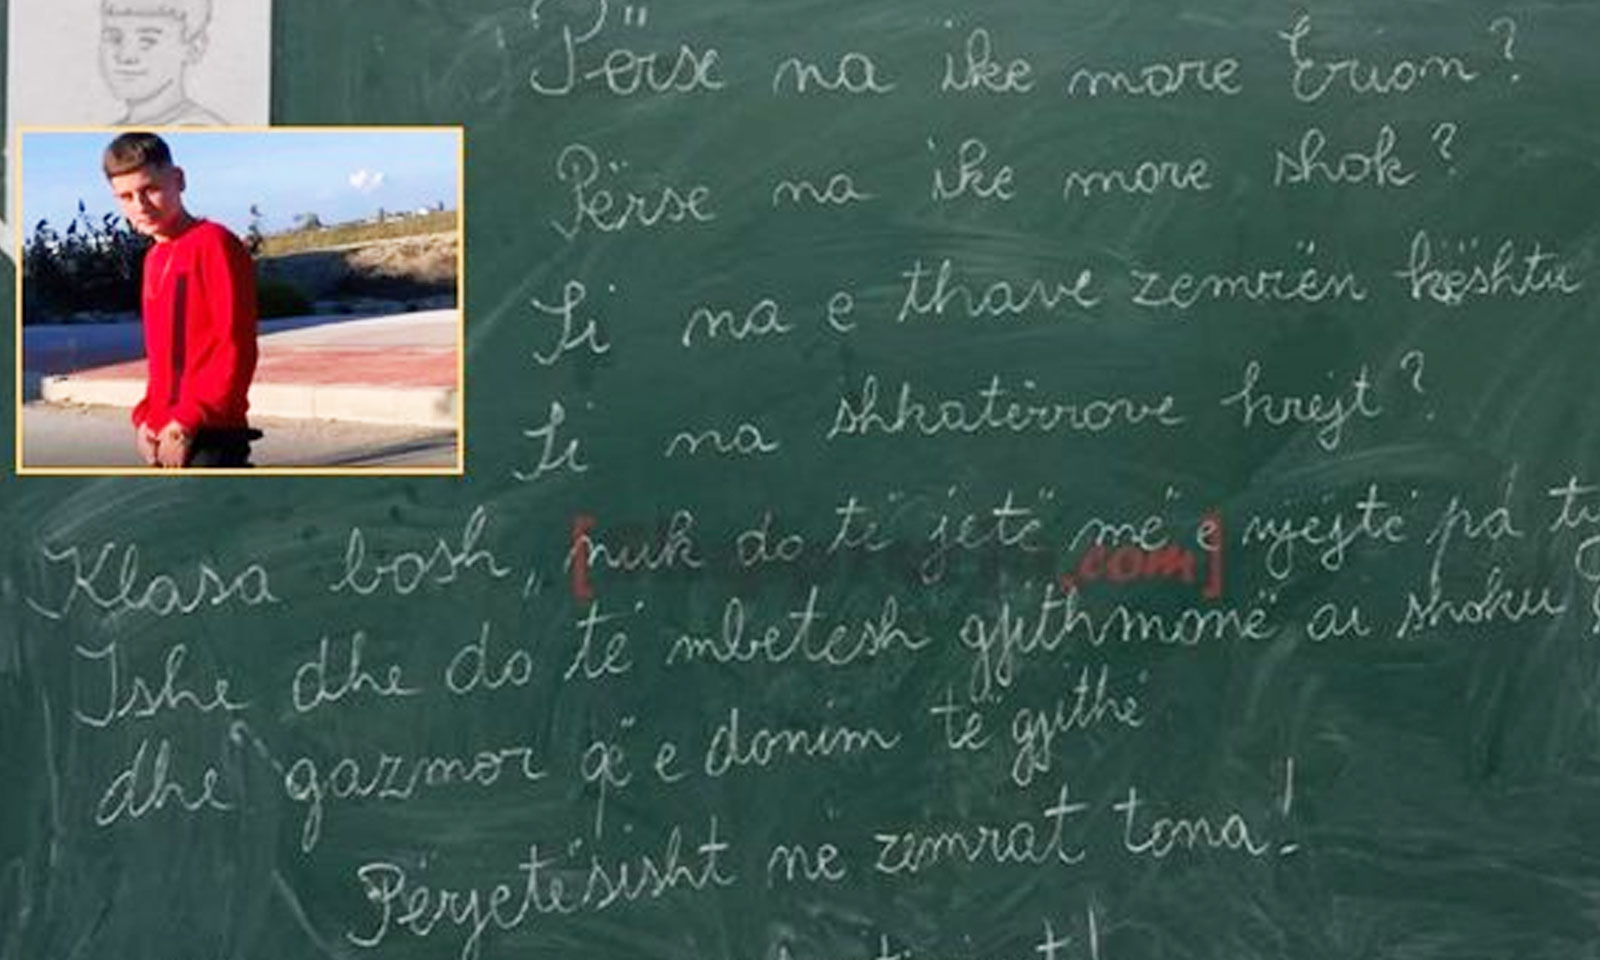 Përse na ike more Erion?
Përse na ike more shok?
Si na e thave zemrën kështu
Si na shkatërrove krejt?
Klasa bosh, nuk do të jetë më e njëjtë pa ty
Ishe dhe do të mbetesh gjithmonë ai shoku
dhe gazmor që e donim të gjithë
Përjetësisht në zemrat tona!
.com]